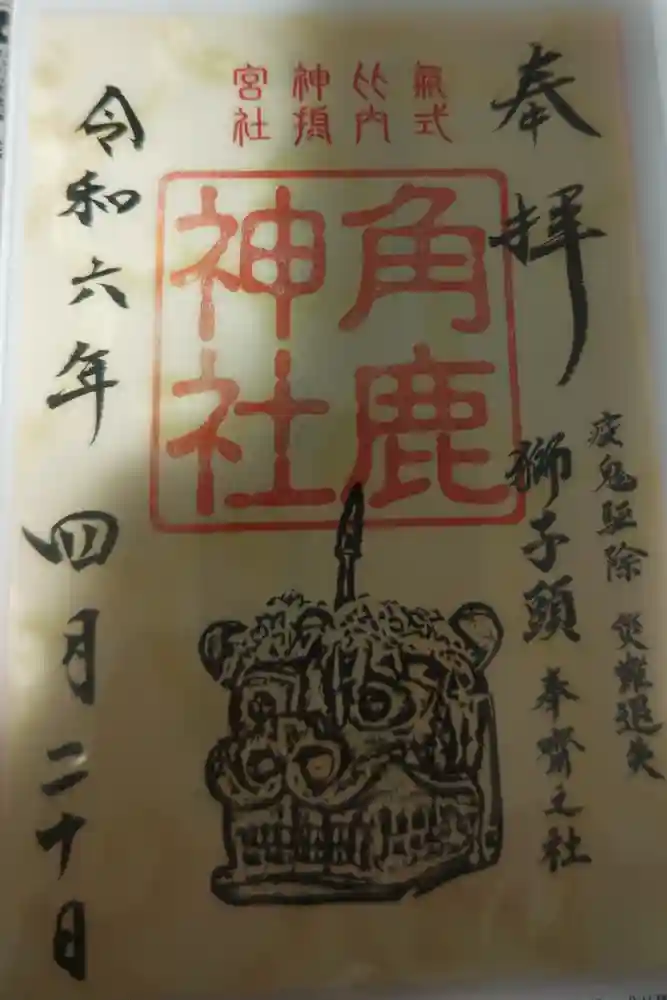 奉拝
疫鬼駆除 災難退失
獅子頭 奉齋之社
氣比神宮
式内攝社
角鹿
神社
令和六年 四月二十日